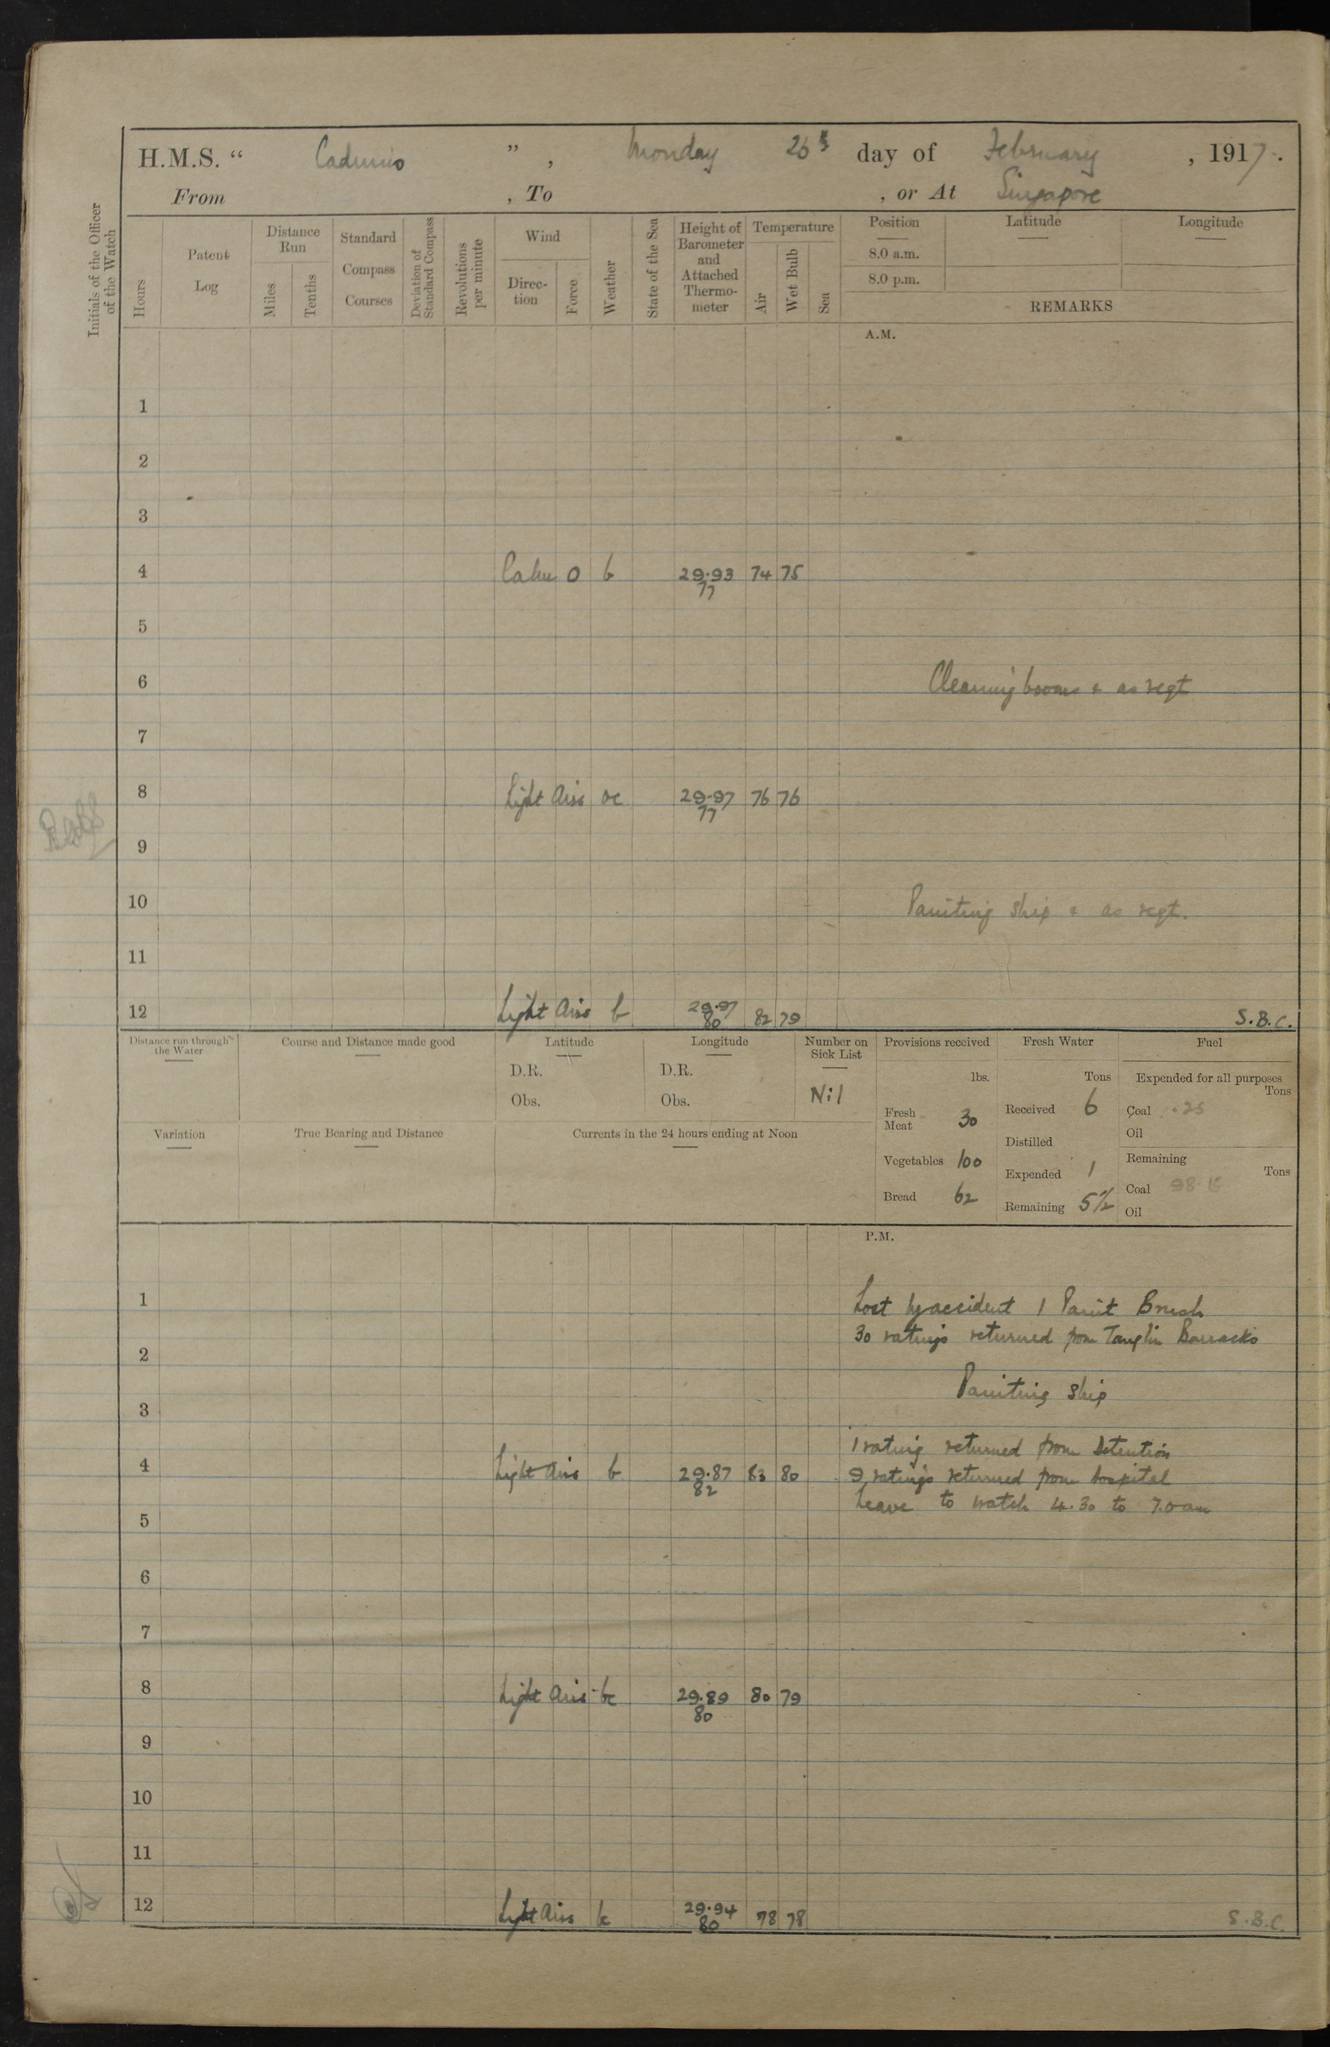 H.M.S. “ Cadmus ” , Monday 26th day of February , 1917.
From , To , or At Singapore
Initials of the Officer of the Watch
Hours
Patent Log
Distance Run
Miles
Tenths
Standard Compass Courses
Deviation of Standard Compass
Revolutions per minute
Wind
Direction
Force
Weather
State of the Sea
Height of Barometer and Attached Thermometer
Temperature
Air
Wet Bulb
Sea
Position Latitude Longitude
8.0 a.m.
8.0 p.m.
REMARKS
A.M.
1
2
3
4 Calm 0 b 29.93 74 75
77
5
6 Cleaning booms & as reqt
7
8 Light Airs oc 29.97 76 76
77
9
10 Painting ship & as reqt.
11
12 Light Airs b 29.97 82 79
80
S.B.C.
Distance run through the Water
Course and Distance made good
Latitude
D.R.
Obs.
Longitude
D.R.
Obs.
Number on Sick List
Nil
Provisions received
lbs.
Fresh Meat 30
Vegetables 100
Bread 62
Fresh Water
Tons
Received 6
Distilled
Expended 1
Remaining 5½
Fuel
Expended for all purposes
Tons
Coal .25
Oil
Remaining
Tons
Coal
Oil
Variation
True Bearing and Distance
Currents in the 24 hours ending at Noon
P.M.
1 Lost by accident 1 Paint Brush
30 ratings returned from Tanglin Barracks
2
Painting ship
3
1 rating returned from Detention
4 Light Airs b 29.87 83 80 9 ratings returned from hospital
82
Leave to watch 4.30 to 7.0 am
5
6
7
8 Light Airs bc 29.89 80 79
80
9
10
11
12 Light Airs bc 29.94 78 78
80
S.B.C.